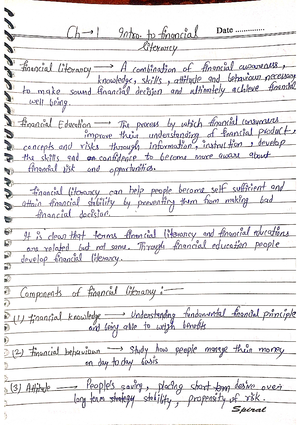 Ch → 1 Intro. to financial Date ............
literacy
financial literacy → A combination of financial awareness,
knowledge, skills, attitude and behaviour necessary
to make sound financial decision and ultimately achieve financial
well being.
financial Education → The process by which financial consumers
improve their understanding of financial product
concepts and risks through information, instruction, develop
the skills and confidence to become more aware about
financial risk and opportunities.
financial literacy can help people become self sufficient and
attain financial stability by preventing them from making bad
financial decision.
It is clear that terms financial literacy and financial educations
are related but not same. Through financial education people
develop financial literacy.
Components of financial literacy :—
(1) financial knowledge → Understanding fundamental financial principle
and being able to weigh benefits
(2) financial behaviour → Study how people manage their money
on day to day basis
(3) Attitude → People's saving, placing short term desire over
long term stability, propensity of risk.
Spiral